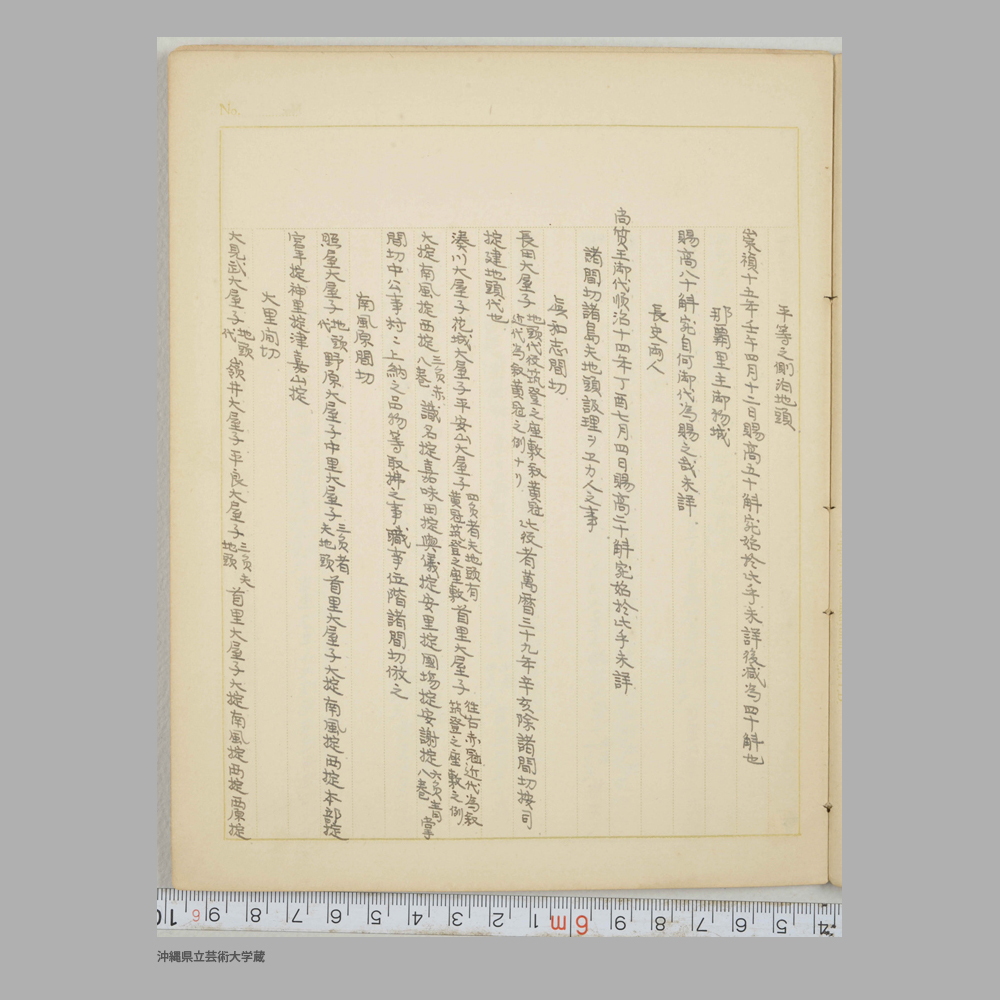 No.
平等之側泊地頭
崇禎十五年壬午四月十二日賜高五十斛究始於此乎未詳後減為四十斛也
那覇里主御物城
賜高八十斛究自何御代為賜之哉未詳
長史両人
尚質王御代順治十四年丁酉七月四日賜高二十斛究始於此乎未詳
諸間切諸島夫地頭設理ヲヱカ人之事
真和志間切
長田大屋子 地頭代役筑登之座敷敍黄冠 近代為敍黄冠之例ナリ 此役者萬暦三十九年辛亥除諸間切按司
掟建地頭代也
湊川大屋子花城大屋子平安山大屋子 四員者夫地頭有 黄冠筑登之座敷 首里大屋子 往古赤冠近代為敍 筑登之座敷之例
大掟南風掟西掟 三員赤 八巻 識名掟嘉味田掟與儀掟安里掟國場掟安謝掟 六員青 八巻 掌
間切中公事并上納之品物等取拂之事職事位階諸間切倣之
南風原間切
照屋大屋子 地頭 代 野原大屋子中里大屋子 三員者 夫地頭 首里大屋子大掟南風掟西掟本部掟
宮平掟神里掟津嘉山掟
大里間切
大見武大屋子 地頭 代 嶺井大屋子平良大屋子 三員夫 地頭 首里大屋子大掟南風掟西掟西原掟
10 6 9 8 7 6 5 4 3 2 1 6m 9 8 7 6 5
沖縄県立芸術大学蔵